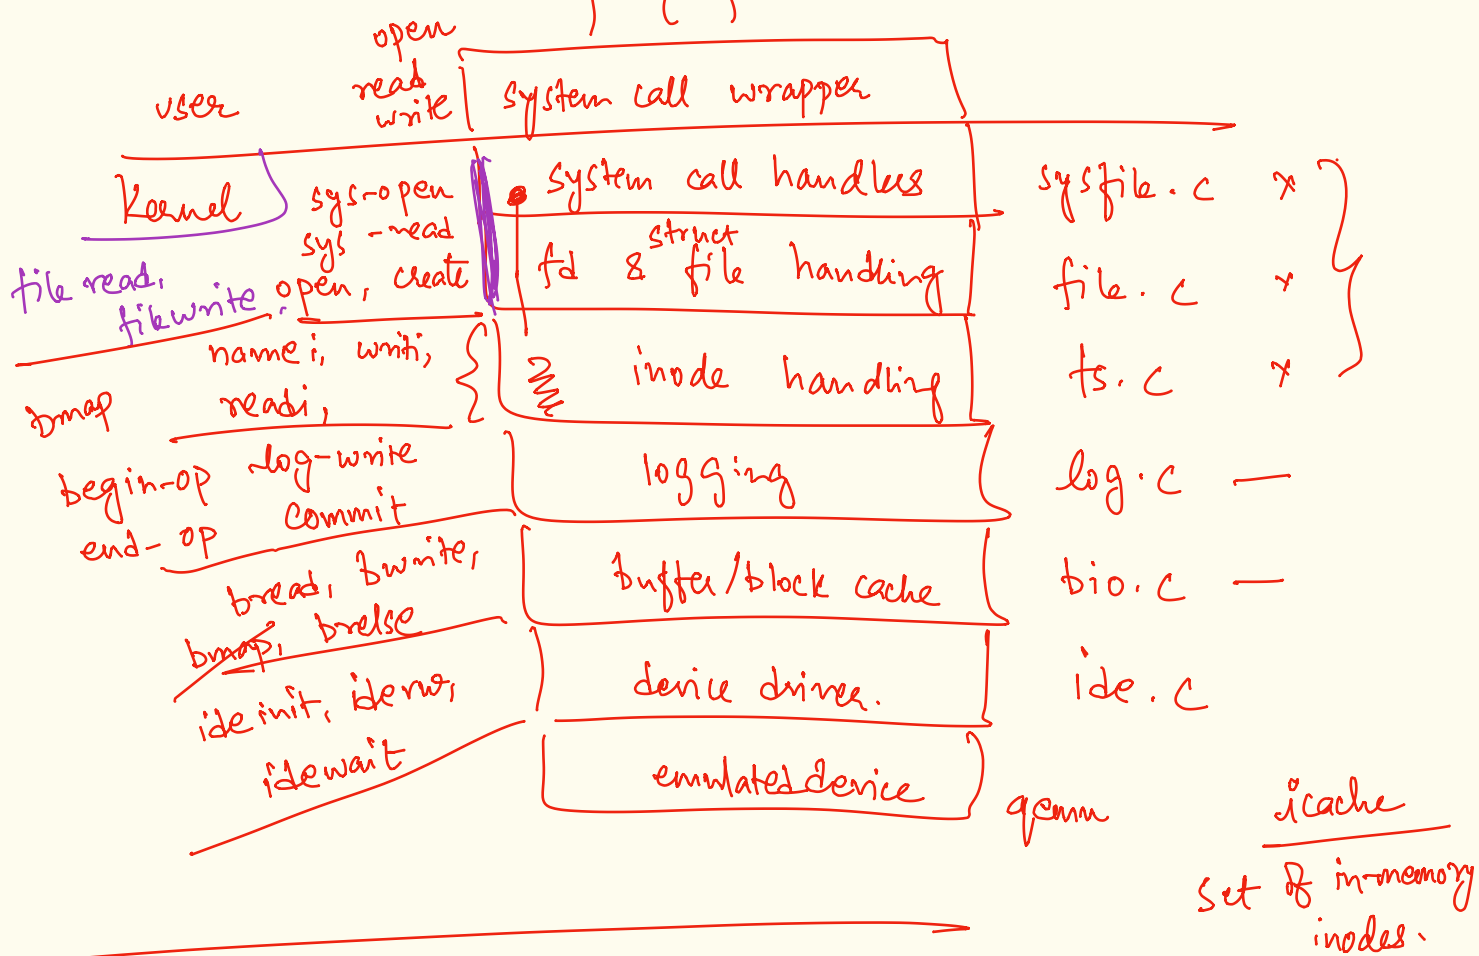 open
read
write
user
system call wrapper
Kernel
sys-open
sys-read
open, create
system call handlers
sysfile.c x
file read,
filewrite
fd & struct file handling
file.c x
namei, writi,
readi,
bmap
inode handling
fs.c x
begin-op
end-op
log-write
commit
logging
log.c —
bread, bwrite,
bmap, brelse
buffer/block cache
bio.c —
ideinit, iderw,
idewait
device driver.
ide.c
emulated device
qemu
icache
set of in-memory
inodes.